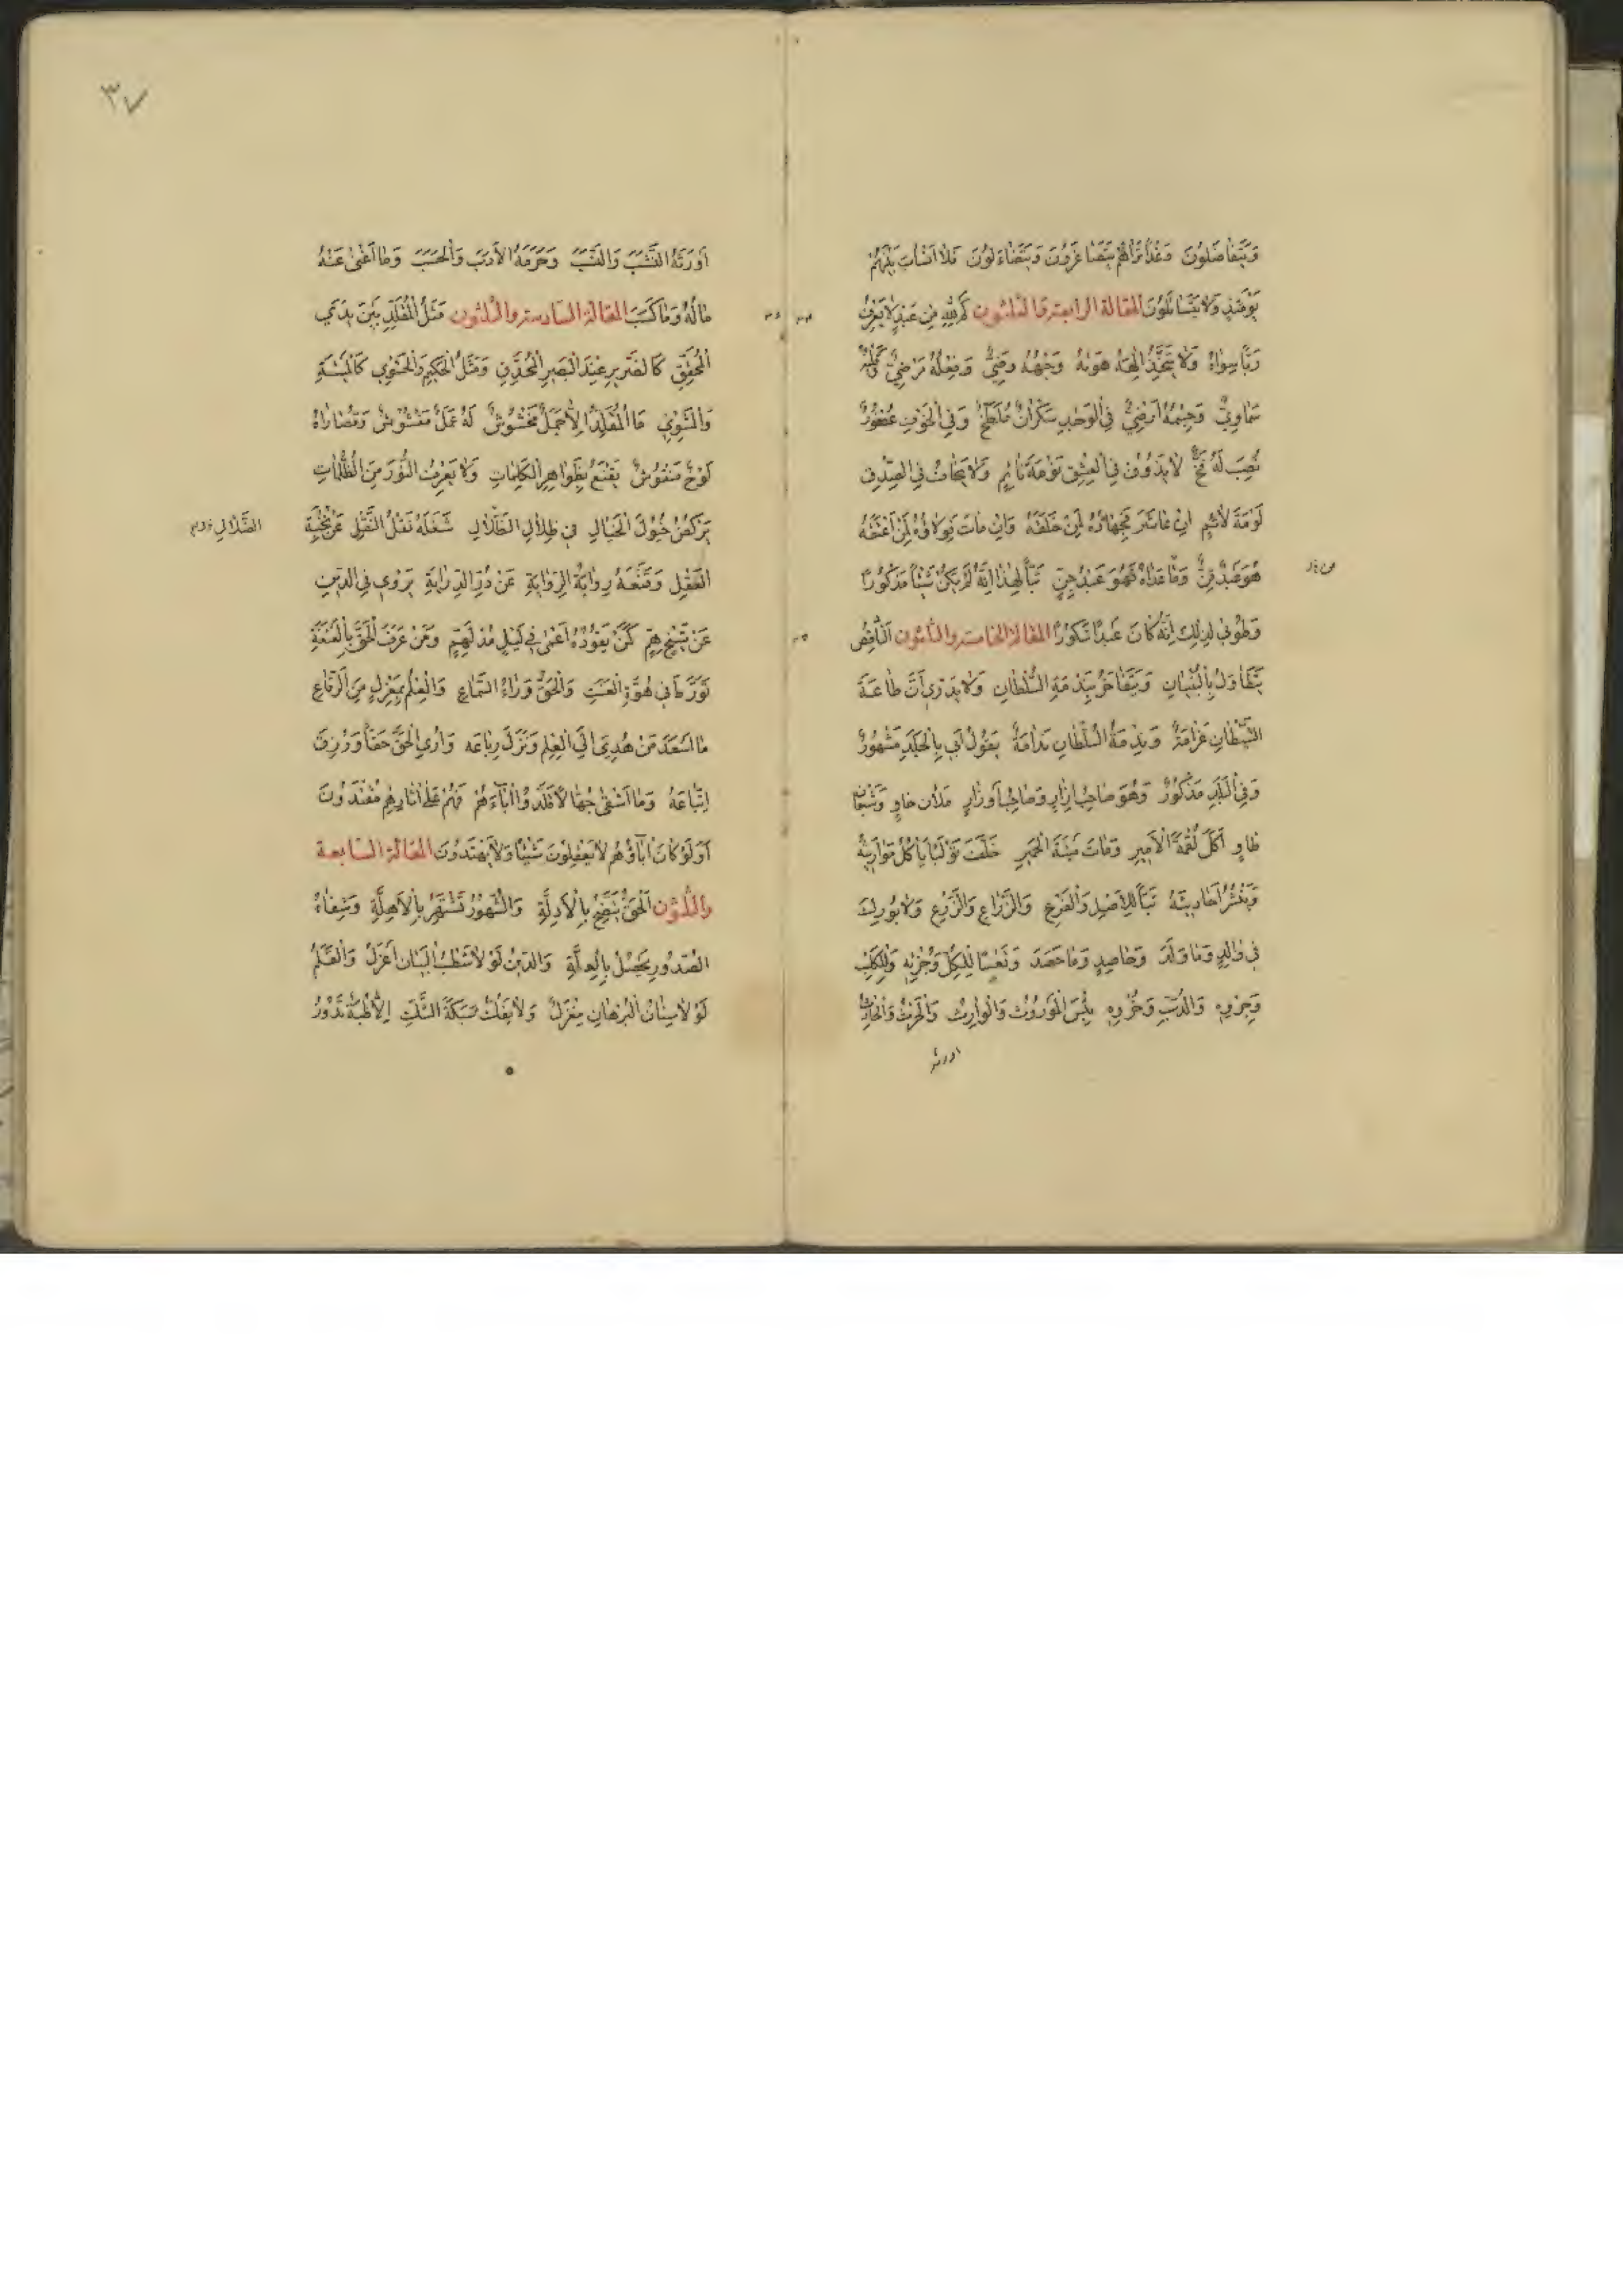 وَيَتَفَاضَلُونَ وَغَدًا تَرَاهُمْ يَتَصَاغَرُونَ وَيَتَضَاءَلُونَ فَلَا اَنْسَابَ بَيْنَهُمْ
يَوْمَئِذٍ وَلَا يَتَسَاءَلُونَ المقالة الرابعة والثلثون كَمْ لِلّٰهِ مِنْ عَبْدٍ لَا يَعْرِفُ
رَبًّا سِوَاهُ وَلَا يَتَّخِذُ اِلٰهَهُ هَوٰيهُ وَجْهُهُ وَضِيٌّ وَفِعْلُهُ مَرْضِيٌّ قَلْبُهُ
سَمَاوِيٌّ وَجِسْمُهُ اَرْضِيٌّ فِي الْوَجْدِ سَكْرَانٌ مُلَطَّخٌ وَفِي الْخَوْفِ عُصْفُورٌ
نُصِبَ لَهُ فَخٌّ لَا يَذُوقُ فِي الْعِشْقِ نَوْمَةَ نَائِمٍ وَلَا يَخَافُ فِي الصِّدْقِ
لَوْمَةَ لَائِمٍ اِنْ عَاشَرَ فَجِهَارُهُ لِمَنْ خَلَقَهُ وَاِنْ مَاتَ فَوَلَاؤُهُ لِمَنْ اَعْتَقَهُ
هُوَ عَبْدٌ قِنٌّ وَمَا عَدَاهُ فَهُوَ عَبْدُ جِنٍّ تَبًّا لِهٰذَا اِنَّهُ لَمْ يَكُنْ شَيْئًا مَذْكُورًا
وَطُوبٰى لِذٰلِكَ اِنَّهُ كَانَ عَبْدًا شَكُورًا المقالة الخامسة والثلثون اَلنَّاقِصُ
يَتَطَاوَلُ بِالْبُنْيَانِ وَيَتَفَاخَرُ بِخِدْمَةِ السُّلْطَانِ وَلَا يَدْرِي اَنَّ طَاعَةَ
الشَّيْطَانِ غَرَامَةٌ وَخِدْمَةُ السُّلْطَانِ نَدَامَةٌ يَقُولُ اَبِي بِالْجَلَدِ مَشْهُورٌ
وَفِي الْبَلَدِ مَذْكُورٌ وَهُوَ صَاحِبُ اِزَارٍ وَصَاحِبُ اَوْزَارٍ مَلْاٰنُ خَاوٍ وَشَبْعَانُ
طَاوٍ اَكَلَ لُقْمَةَ الْاَمِيرِ وَمَاتَ مِيتَةَ الْحَمِيرِ خَلَّفَ يَأْكُلُ مَوَارِيثَهُ
وَيَنْشُرُ اَحَادِيثَهُ تَبًّا لِلْاَصْلِ وَالْفَرْعِ وَالزَّرَّاعِ وَالزَّرْعِ وَلَا بُورِكَ
فِي وَالِدٍ وَمَا وَلَدَ وَحَاصِدٍ وَمَا حَصَدَ وَتَعْسًا لِلْكُلِّ وَجُزْئِهِ وَلِلْكَلْبِ
وَجِرْوِهِ وَالدُّبِّ وَخُرْوِهِ بِئْسَ الْمَوْرُوثُ وَالْوَارِثُ وَالْحَرْثُ وَالْحَارِثُ
اورثه
٣٧
اَوْرَثَهُ النَّشَبَ وَالنَّسَبَ وَحَرَمَهُ الْاَدَبَ وَالْحَسَبَ وَمَا اَغْنٰى عَنْهُ
مَالُهُ وَمَا كَسَبَ المقالة السادسة والثلثون مَثَلُ الْمُقَلِّدِ بَيْنَ يَدَيِ
الْمُحَقِّقِ كَالضَّرِيرِ عِنْدَ الْبَصِيرِ الْمُحَدِّقِ وَمَثَلُ الْحَكِيمِ وَالْحَشْوِيِ كَالْمَيْتَةِ
وَالْمَشْوِيِ مَا الْمُقَلِّدُ اِلَّا جَمَلٌ مَخْشُوشٌ لَهُ عَمَلٌ مَغْشُوشٌ وَقُصَارَاهُ
لَوْحٌ مَنْقُوشٌ يَقْنَعُ بِظَوَاهِرِ الْكَلِمَاتِ وَلَا يَعْرِفُ النُّورَ مِنَ الظُّلُمَاتِ
يَرْكُضُ خُيُولَ الْخَيَالِ فِي ظِلَالِ الضَّلَالِ شَغَلَهُ نَقْلُ النَّقْلِ عَنْ نُخْبَةِ
الضَّلَالِ
الْعَقْلِ وَقَنَّعَهُ رِوَايَةُ الرِّوَايَةِ عَنْ دُرِّ الدِّرَايَةِ يَرْوِي فِي الدِّينِ
عَنْ شَيْخٍ هِمٍّ كَمَنْ يَقُودُهُ اَعْمٰى فِي لَيْلٍ مُدْلَهِمٍّ وَمَنْ عَرَفَ الْحَقَّ بِالْعَنْعَنَةِ
تَوَرَّطَ فِي هُوَّةِ الْعَنَتِ وَالْحَقُّ وَرَاءَ السَّمَاعِ وَالْعِلْمُ بِمَعْزِلٍ مِنَ الرِّقَاعِ
مَا اَسْعَدَ مَنْ هُدِيَ اِلَى الْعِلْمِ وَنَزَلَ رِبَاعَهُ وَاُرِيَ الْحَقَّ حَقًّا وَرُزِقَ
اِتِّبَاعَهُ وَمَا اَشْقٰى جُهَّالًا قَلَّدُوا اٰبَآءَهُمْ فَهُمْ عَلٰى اٰثَارِهِمْ مُقْتَدُونَ
اَوَلَوْ كَانَ اٰبَاؤُهُمْ لَا يَعْقِلُونَ شَيْئًا وَلَا يَهْتَدُونَ المقالة السابعة
والثلثون اَلْحَقُّ يَتَّضِحُ بِالْاَدِلَّةِ وَالشُّهُورُ تَشْتَهِرُ بِالْاَهِلَّةِ وَشِفَاءُ
الصُّدُورِ يَحْصُلُ بِالْعِلَّةِ وَالدِّينُ لَوْلَا شَطْبُ الْبَيَانِ اَعْزَلُ وَالْقَلَمُ
لَوْلَا سِنَانُ الْبُرْهَانِ مِغْزَلٌ وَلَا يَفُكُّ شَبَكَةَ الشَّكِّ اِلَّا